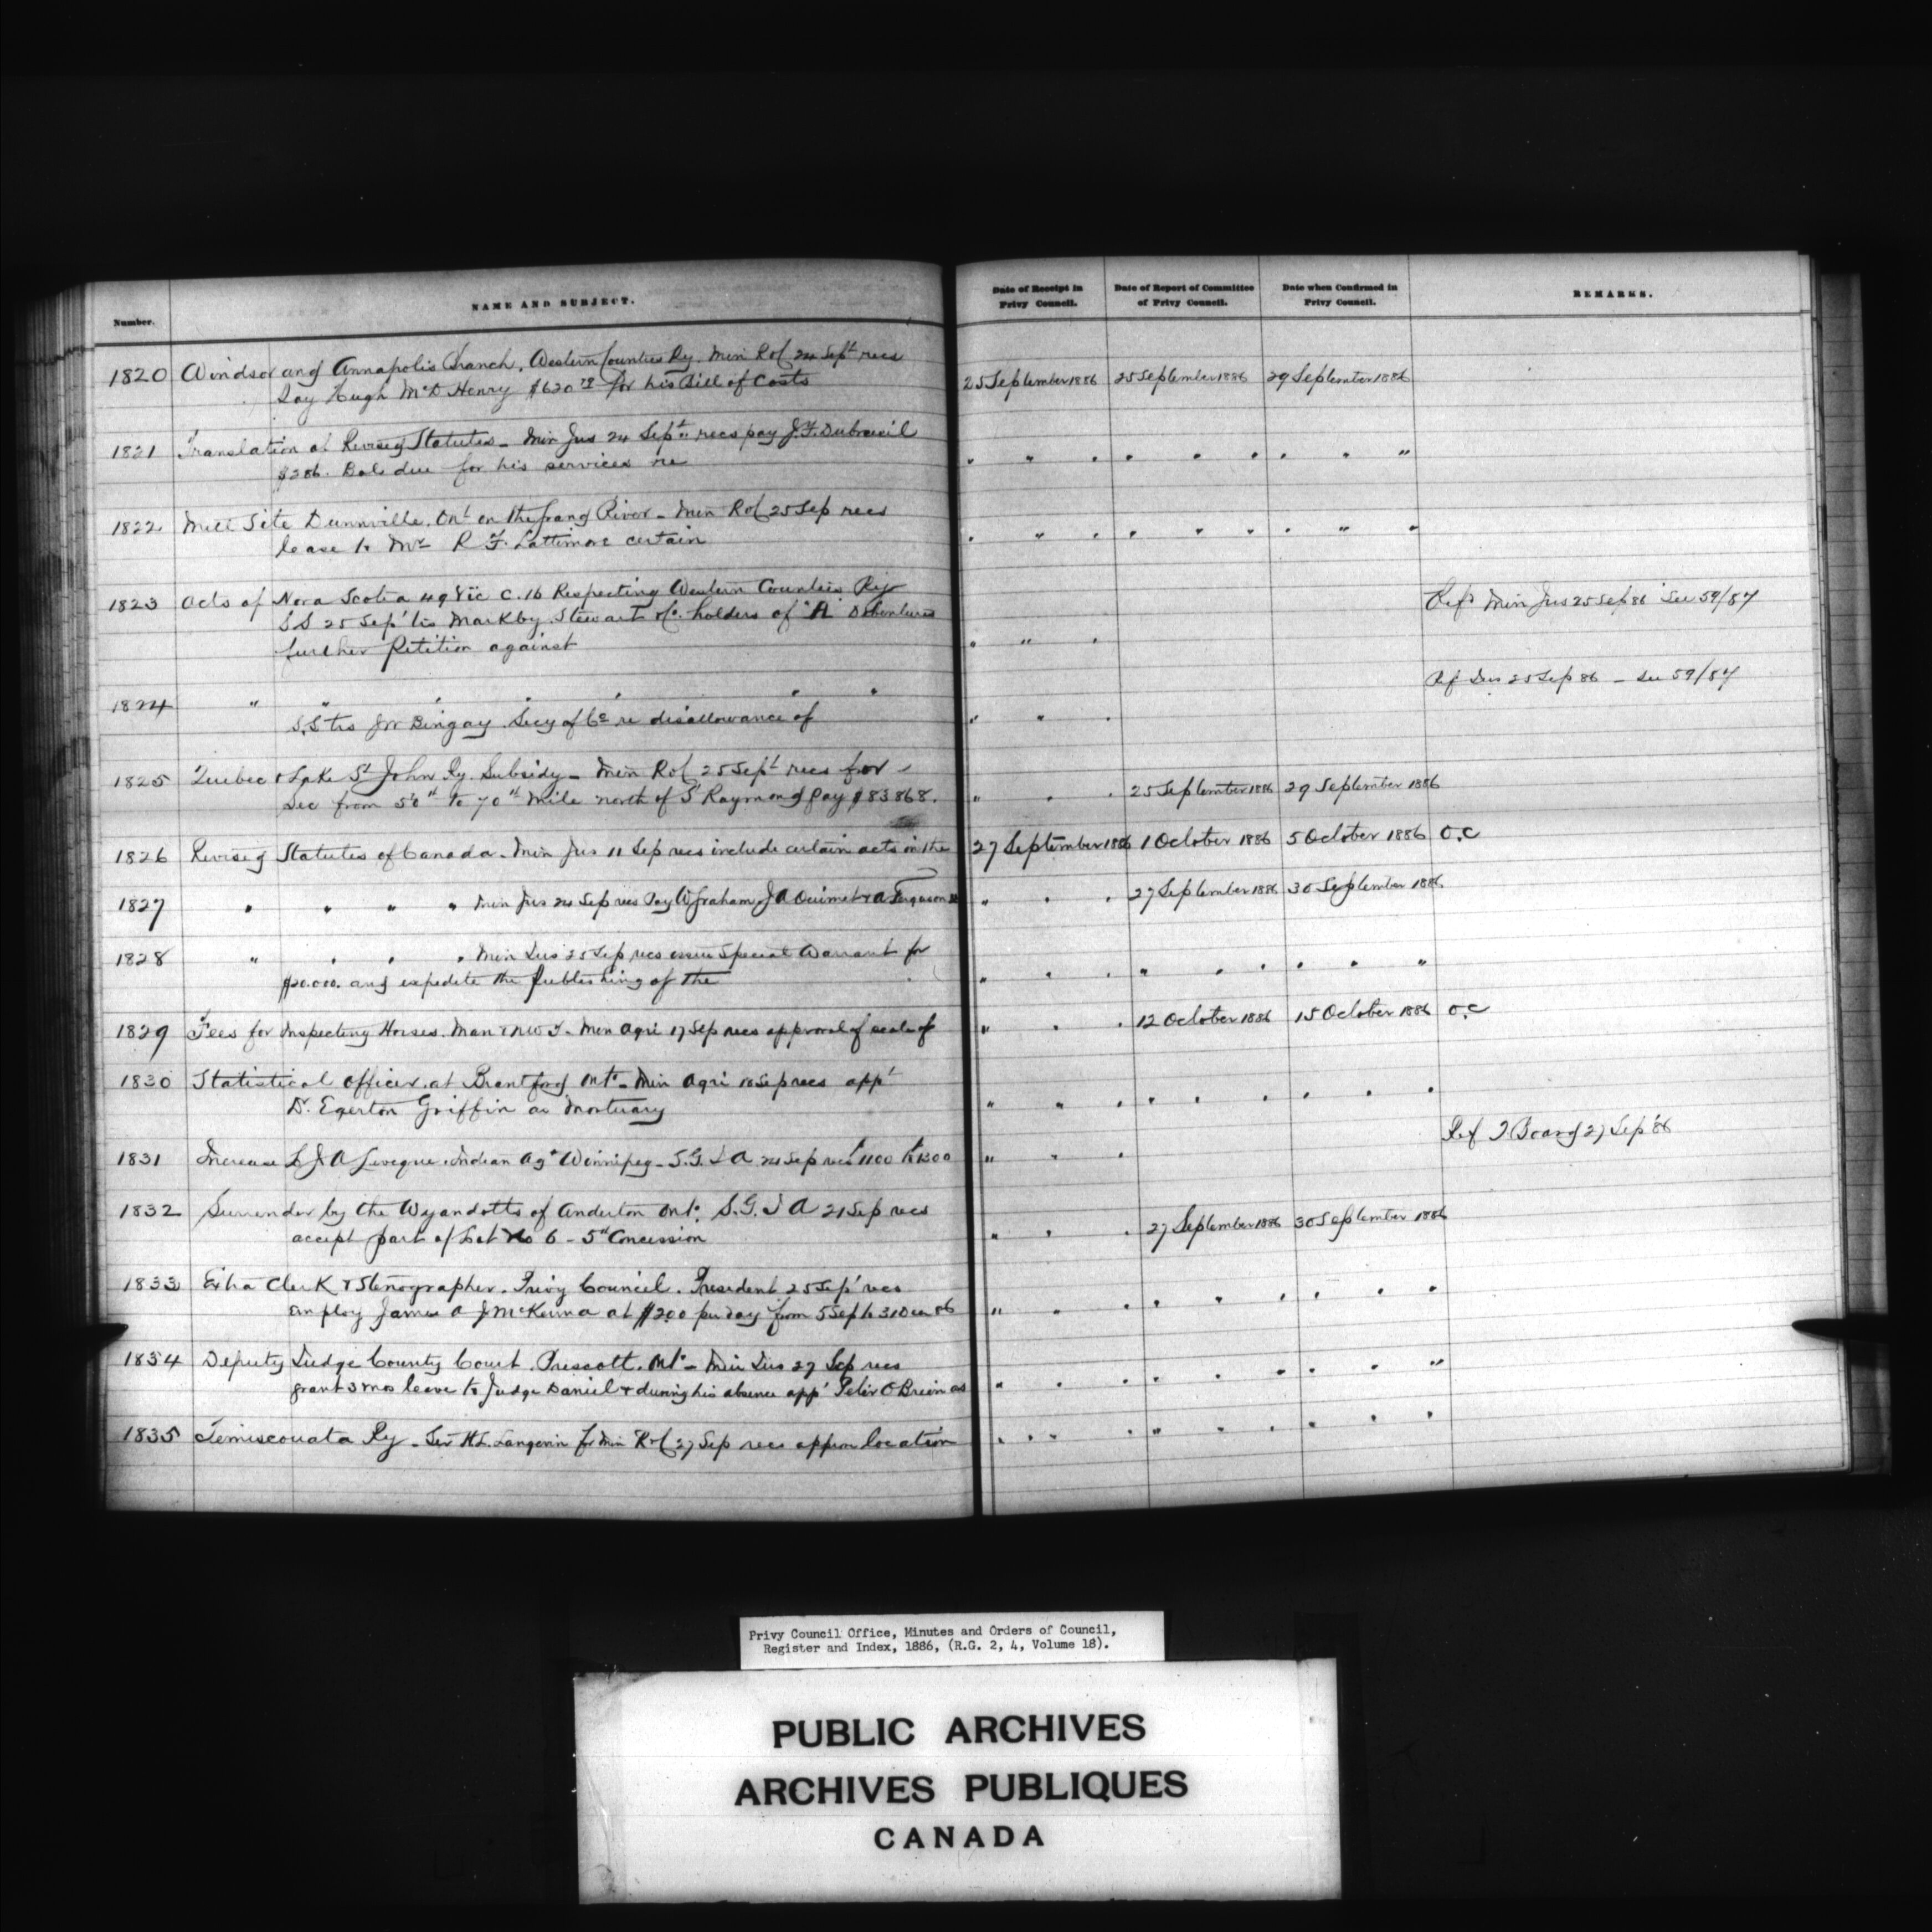 Number. NAME AND SUBJECT. Date of Receipt in Privy Council. Date of Report of Committee of Privy Council. Date when Confirmed in Privy Council. REMARKS.
1820 Windsor and Annapolis Branch. Western Counties Ry. Min R&C 24 Sept recs
Pay Hugh McD Henry $620 for his Bill of Costs 25 September 1886 25 September 1886 29 September 1886
1821 Translation of Revised Statutes - Min Jus 24 Sept recs pay J.F. Dubreuil
$286. Bal due for his services re " " " " " " " " "
1822 Mill Site Dunnville. Ont on the Grand River - Min R&C 25 Sep recs
lease to Mr R F. Lattimore certain " " " " " " " " "
1823 Acts of Nova Scotia 49 Vic c. 16 Respecting Western Counties Ry Refd Min Jus 25 Sep 86 See 59/87
S S 25 Sep' tis Markby Stewart &Co. holders of "A" Debentures
further Petition against " " "
1824 " " " " " " " Ref Jus 25 Sep 86 - See 59/87
S.S tis Bingay Secy of Co re disallowance of " " "
1825 Quebec & Lake St John Ry. Subsidy - Min R&C 25 Sept recs for
Sec from 50th to 70th Mile north of St Raymond pay $83868. " " " 25 September 1886 29 September 1886
1826 Revised Statutes of Canada - Min Jus 11 Sep recs include certain acts in the 27 September 1886 1 October 1886 5 October 1886 O.C
1827 " " " " Min Jus 24 Sep recs Pay W Graham, J A Ouimet & A Ferguson " " " 27 September 1886 30 September 1886
1828 " " " " Min Jus 25 Sep recs issue Special Warrant for
$20.000. and expedite the publishing of the " " " " " " " " "
1829 Fees for Inspecting Horses. Man & NW T - Min Agri 17 Sep recs approval of scale of " " " 12 October 1886 15 October 1886 O.C
1830 Statistical Officer at Brantford Ont - Min Agri 18 Sep recs appt
Dr. Egerton Griffin as Mortuary " " " " " " " " "
Ref T Board 27 Sep '86
1831 Increase to J A Leveque. Indian Agt Winnipeg - S.G. I A 24 Sep recs $1100 to 1200 " " "
1832 Surrender by the Wyandotts of Anderdon Ont. S.G. I A 21 Sep recs
accept part of Lot No 6 - 5th Concession " " " 27 September 1886 30 September 1886
1833 Extra Clerk & Stenographer. Privy Council. President 25 Sep' recs
employ James A J McKenna at $2.00 per day from 5 Sep to 31 Dec 86 " " " " " " " " "
1834 Deputy Judge County Court. Prescott. Ont - Min Jus 27 Sep recs
grant 3 mos leave to Judge Daniel & during his absence appt Peter O'Brien as " " " " " " " " "
1835 Temiscouata Ry - Sir H.L. Langevin for Min R&C 27 Sep recs approve location " " " " " " " " "
Privy Council Office, Minutes and Orders of Council,
Register and Index, 1886, (R.G. 2, 4, Volume 18).
PUBLIC ARCHIVES
ARCHIVES PUBLIQUES
CANADA